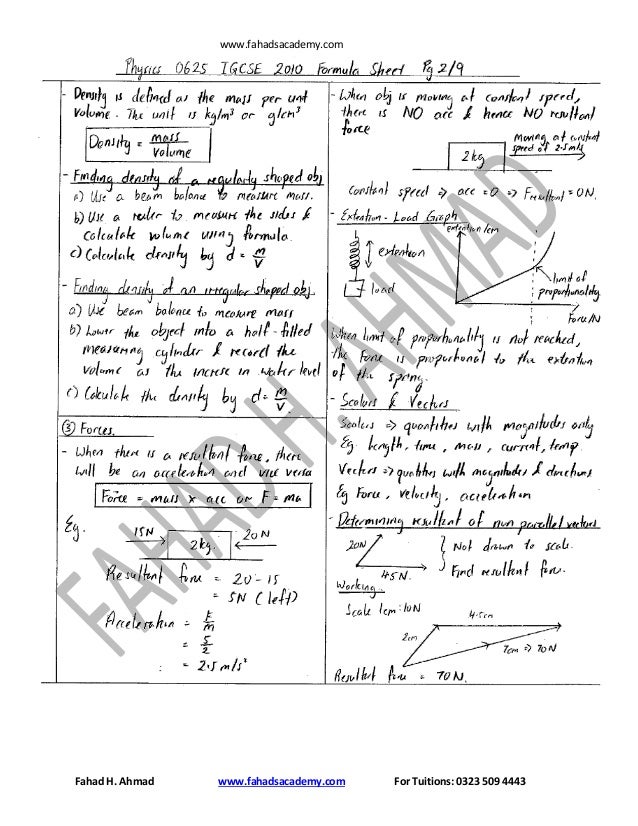 www.fahadsacademy.com
Physics 0625 IGCSE 2010 Formula Sheet Pg 2/9
- Density is defined as the mass per unit
volume. The unit is kg/m³ or g/cm³
Density = mass
volume
- Finding density of a regularly shaped obj
a) Use a beam balance to measure mass.
b) Use a ruler to measure the sides &
calculate volume using formula.
c) Calculate density by d = m
V
- Finding density of an irregular shaped obj.
a) Use beam balance to measure mass
b) Lower the object into a half-filled
measuring cylinder & record the
volume as the increse in water level
c) Calculate the density by d = m
V.
③ Forces.
- When there is a resultant force, there
will be an acceleration and vice versa
Force = mass x acc or F = ma
Eg.
15N
2kg.
20N
Resultant force = 20 - 15
= 5N (left)
Acceleration = F
m
= 5
2
: = 2.5 m/s²
- When obj is moving at constant speed,
there is NO acc & hence NO resultant
force
moving at constant
speed of 2.5m/s
2kg
constant speed ⇒ acc = 0 ⇒ Fresultant = 0N.
- Extention - Load Graph
extention/cm
extention
load
limit of
proportionality
Force/N
When limit of proportionality is not reached,
the force is proportional to the extention
of the spring.
- Scalars & Vectors
Scalers ⇒ quantities with magnitudes only
Eg. length, time, mass, current, temp.
Vectors ⇒ quatities with magnitudes & directions
Eg Force, velocity, acceleration
- Determining resultant of non parallel vectors
20N
45N.
Not drawn to scale.
Find resultant force.
Working.
Scale 1cm:10N
4.5cm
2cm
7cm ⇒ 70N
Resultant force = 70N.
FAHAD H. AHMAD
Fahad H. Ahmad www.fahadsacademy.com For Tuitions: 0323 509 4443